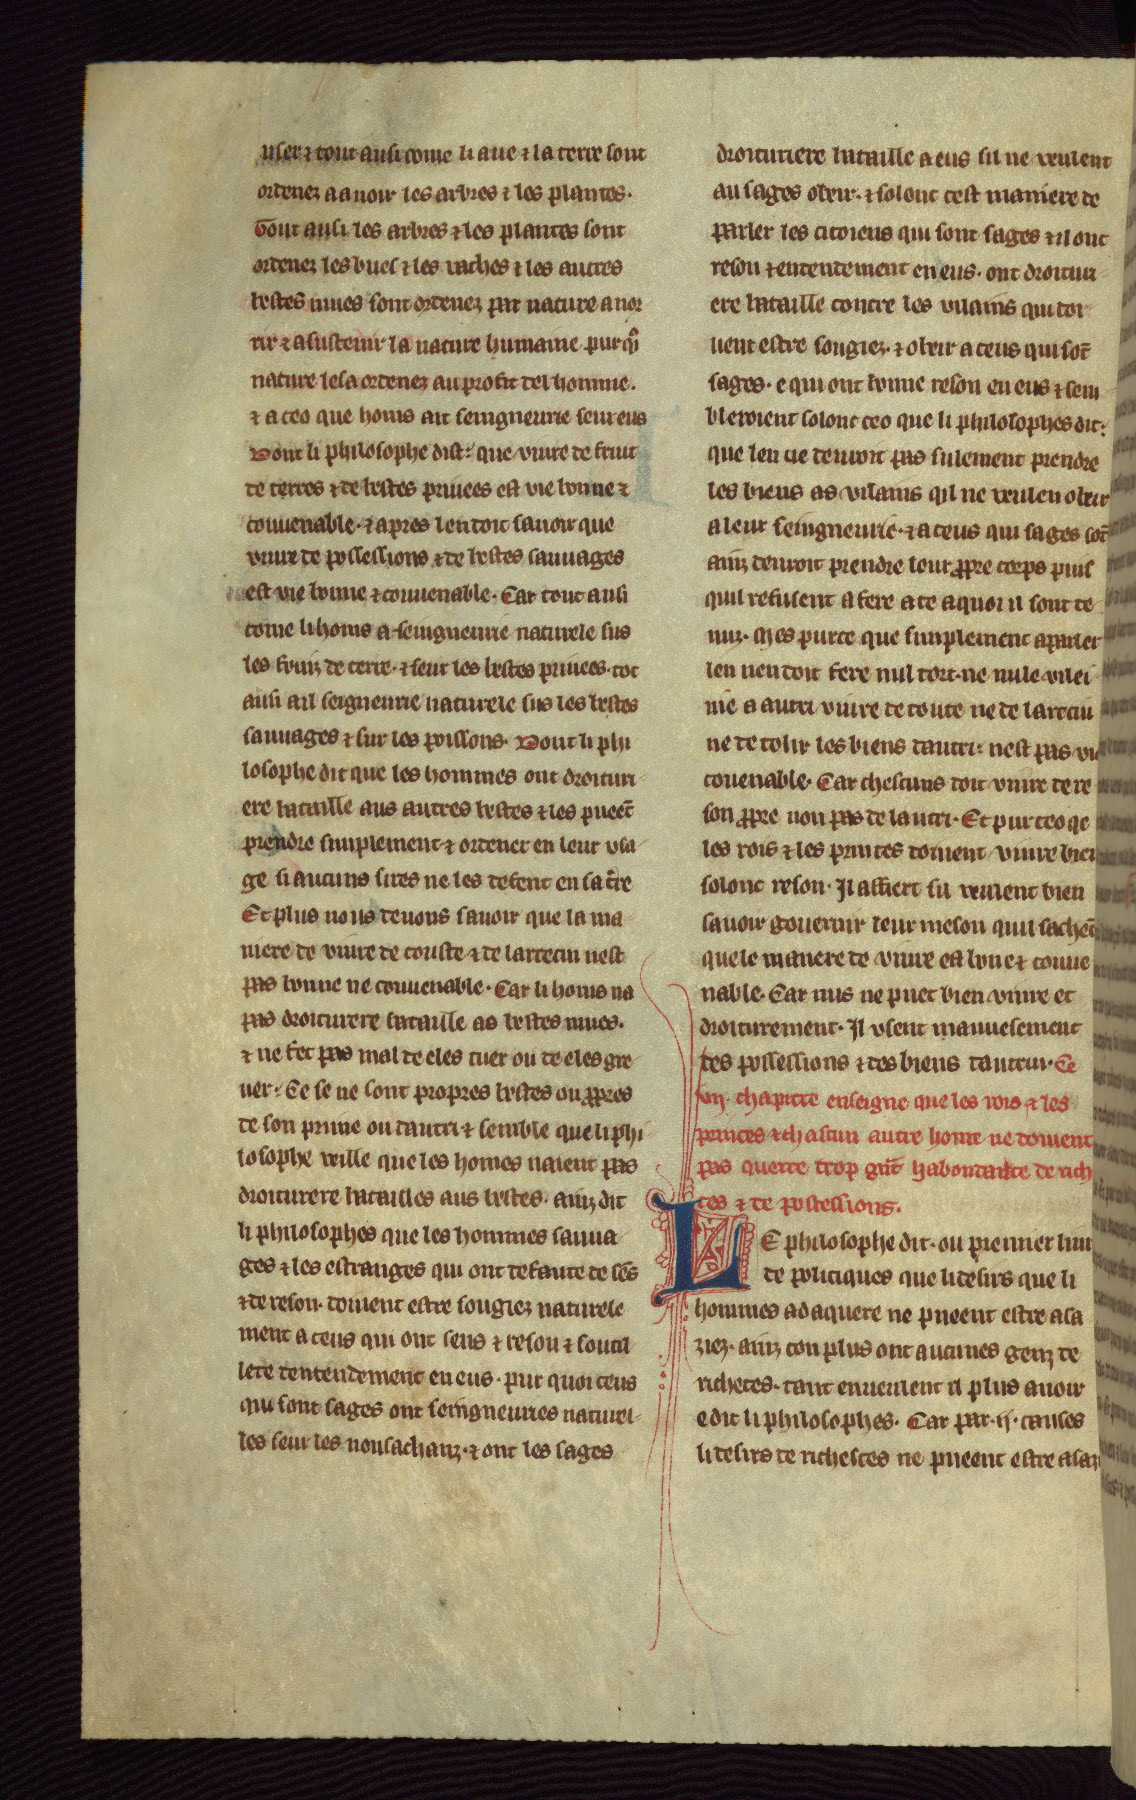 user ⁊ tout ausi come li aue ⁊ la terre sont
ordenez a auoir les arbres ⁊ les plantes.
Tout ausi les arbres ⁊ les plantes sont
ordenez les buef ⁊ les vaches ⁊ les autres
bestes mues sont ordenez par nature a nor
rir ⁊ a sustenir la nature humaine pur qͥ
nature les a ordenez au profit del homme.
⁊ a ceo que homs ait seingneurie seur eus
Dont li philosophe dist: que viure de fruit
de terres ⁊ de bestes priuees est vie bonne ⁊
couuenable. ⁊ apres len doit sauoir que
viure de possessions ⁊ de bestes sauuages
est vie bonne ⁊ couuenable. Car tout ausi
come li homs a seingneurie naturele sus
les fruiz de terre. ⁊ seur les bestes priuees. tot
ausi a il seigneurie naturele sus les bestes
sauuages ⁊ sur les poissons. Dont li phi
losophe dit que les hommes ont droitur
ere bataille aus autres bestes ⁊ les pueēt
prendre simplement ⁊ ordener en leur vsa
ge si aucuns sires ne les defent en sa t̄re
Et plus nous deuons sauoir que la ma
niere de viure de touste ⁊ de larrecin nest
pas bonne ne couuenable. Car li homs na
pas droiturere bataille as bestes mues.
⁊ ne fet pas mal de eles tuer ou de eles gre
uer: Ce se ne sont propres bestes ou ꝓpres
de son prime ou dautri ⁊ semble que li phi
losophe veille que les homes naient pas
droiturere batailles aus bestes. ainz dit
li philosophes que les hommes sauua
ges ⁊ les estranges qui ont defaute de sēs
⁊ de reson. doiuent estre sougiez naturele
ment a ceus qui ont sens ⁊ reson ⁊ soutil
lete dentendement en eus. pur quoi ceus
qui sont sages ont seingneuries naturel
les seur les nonsachanz. ⁊ ont les sages
droituriere bataille a eus sil ne veulent
au sages obeir. ⁊ solonc cest maniere de
parler les citoiens qui sont sages ⁊ il ont
reson ⁊ entendement en eus. ont droitur
ere bataille contre les vilains qui doi
uent estre sougiez. ⁊ obeir a ceus qui sōt
sages. e qui ont bonne reson en eus ⁊ sem
bleroient solonc ceo que li philosophes dit:
que len ne deuroit pas sulement prendre
les biens as vilains qil ne veulen obeir
a leur seingneurie. ⁊ a ceus qui sages sōt
ainz deuroit prendre leur ꝓpre corps puis
quil refusent a fere a ce a quoi il sont te
nuz. Mes purce que simplement a parler
len nen doit fere nul tort. ne nule vilei
nie a autri viure de toute ne de larrecin
ne de tolir les biens dautri: nest pas vie
couenable. Car chescuns doit viure de re
son ꝓpre non pas de lautri. Et pur ceo qe
les rois ⁊ les princes doiuent viure bien
solonc reson. Il affiert sil veulent bien
sauoir gouernir leur meson quil sachēt
quele manere de viure est bone ⁊ couue
nable. Car nus ne puet bien viure et
droiturement. Il vsent mauuesement
des possessions ⁊ des biens dauteur. Ce
vij. chapitre enseigne que les rois ⁊ les
princes ⁊ chascun autre home ne doiuent
pas querre trop gn̄t habondance de rich
ces ⁊ de possessions.
LE philosophe dit. ou premier liu
de politiques que li desirs que li
hommes ad aquere ne pueent estre asa
ziez. ainz con plus ont aucunes genz de
richeces. tant enueulent il plus auoir
e dit li philosophes. Car par .ij. causes
li desirs de richesces ne pueent estre asaz